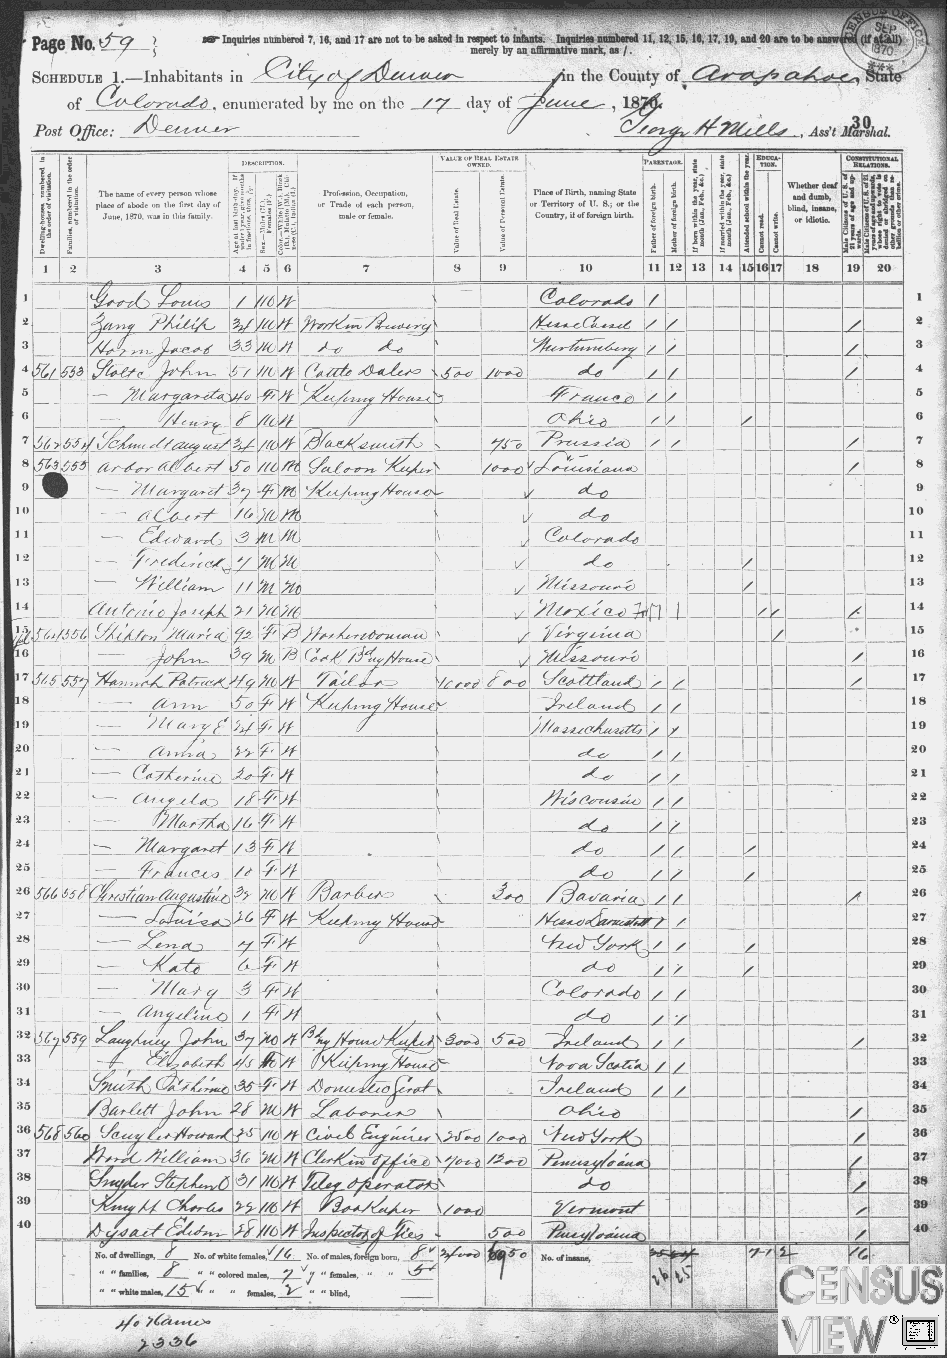 Page No. 59
☞ Inquiries numbered 7, 16, and 17 are not to be asked in respect to infants. Inquiries numbered 11, 12, 15, 16, 17, 19, and 20 are to be answered (if at all)
merely by an affirmative mark, as /.
CENSUS OFFICE
SEP
1870
SCHEDULE 1.—Inhabitants in City of Denver, in the County of Arapahoe, State
of Colorado, enumerated by me on the 17 day of June, 1870.
30
Post Office: Denver George H Mills, Ass't Marshal.
Dwelling-houses numbered in the order of visitation.
Families, numbered in the order of visitation.
The name of every person whose place of abode on the first day of June, 1870, was in this family.
DESCRIPTION.
Profession, Occupation, or Trade of each person, male or female.
VALUE OF REAL ESTATE OWNED.
Value of Real Estate.
Value of Personal Estate.
Place of Birth, naming State or Territory of U. S.; or the Country, if of foreign birth.
PARENTAGE.
Father of foreign birth.
Mother of foreign birth.
Attended school within the year.
EDUCATION.
Cannot read.
Cannot write.
Whether deaf and dumb, blind, insane, or idiotic.
CONSTITUTIONAL RELATIONS.
1 2 3 4 5 6 7 8 9 10 11 12 13 14 15 16 17 18 19 20
1 Good Louis 1 M W Colorado / 1
2 Zang Philip 34 M W Work in Brewery Hesse Cassel / / / 2
3 Horm Jacob 33 M W do do Wurtumberg / / / 3
4 561 553 Stolte John 51 M W Cattle Dealer 500 1000 do / / / 4
5 — Margareta 40 F W Keeping House France / / 5
6 — Henry 8 M W Ohio / / / 6
7 562 554 Schmidt August 34 M W Blacksmith 750 Prussia / / / 7
8 563 555 Arbor Albert 50 M M Saloon Keeper 1000 Louisiana / 8
9 — Margaret 37 F M Keeping House do 9
10 — Albert 16 M M do 10
11 — Edward 3 M M Colorado 11
12 — Frederick 7 M M do / 12
13 — William 11 M M Missouri / 13
14 Antonio Joseph 21 M M Mexico / / / / / 14
15 564 556 Shipton Maria 92 F B Washerwoman Virginia / 15
16 — John 39 M B Cook Bdng House Missouri / 16
17 565 557 Hannah Patrick 49 M W Tailor 10000 800 Scottland / / / 17
18 — Ann 50 F W Keeping House Ireland / / 18
19 — Mary E 24 F W Massachusetts / / 19
20 — Anna 22 F W do / / 20
21 — Catherine 20 F W do / / 21
22 — Angela 18 F W Wisconsin / / 22
23 — Martha 16 F W do / / 23
24 — Margaret 13 F W do / / / 24
25 — Frances 10 F W do / / / 25
26 566 558 Christian Augustine 32 M W Barber 300 Bavaria / / / 26
27 — Louisa 26 F W Keeping House Hesse Darmstadt / / 27
28 — Lena 7 F W New York / / / 28
29 — Kate 6 F W do / / / 29
30 — Mary 3 F W Colorado / / 30
31 — Angeline 1 F W do / / 31
32 567 559 Laughney John 37 M W Bdng House Keeper 3000 500 Ireland / / / 32
33 — Elizabeth 45 W Keeping House Nova Scotia / / 33
34 Smith Catherine 35 F W Domestic Servt Ireland / / 34
35 Barlett John 28 M W Laborer Ohio / 35
36 568 560 Howard 35 M W Civil Enginier 2500 1000 New York / 36
37 Ward William 36 M W Clerk in Office 7000 1200 Pennsylvania / 37
38 Snyder Stephen D 31 M W Teleg Operator do / 38
39 Knight Charles 22 M W Bookeeper 1000 Vermont / 39
40 Dysart Edwin 28 M W Inspector of Ties 500 Pensylvania / 40
No. of dwellings, 8 No. of white females, 16 No. of males, foreign born, 8 No. of insane, 16
" " families, 8 " " colored males, 7 " " females, " " 5 26 25
" " white males, 15 " " " females, 2 " " blind,
40 Names
2336
CENSUS
VIEW®